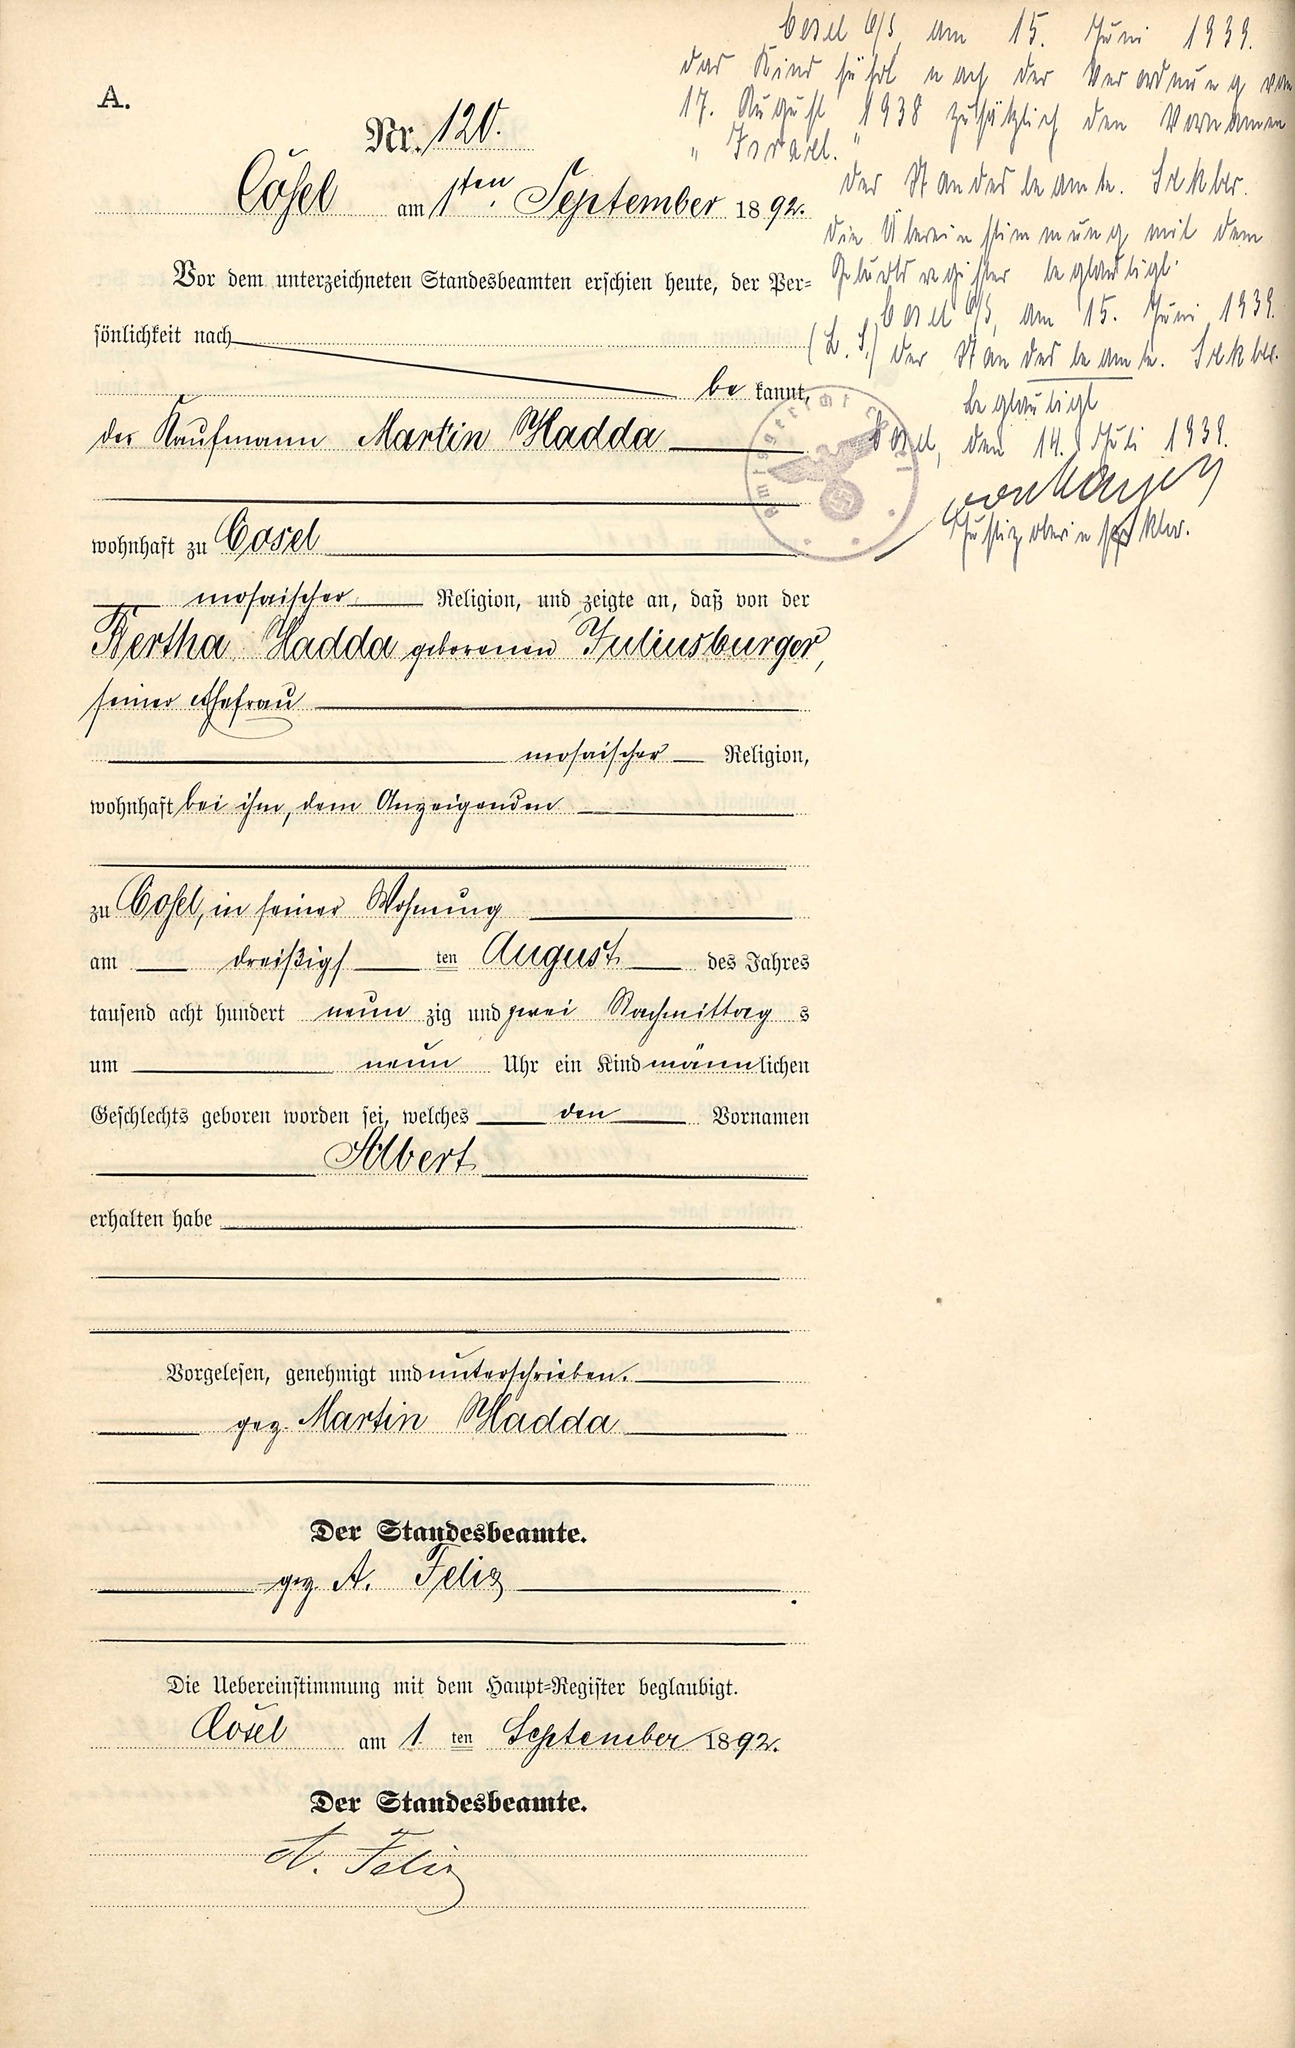 A.
Nr. 120.
Cosel am 1ten September 1892.
Vor dem unterzeichneten Standesbeamten erschien heute, der Per-
sönlichkeit nach
bekannt,
der Kaufmann Martin Hadda
wohnhaft zu Cosel
mosaischer Religion, und zeigte an, daß von der
Bertha Hadda geborenen Juliusburger,
seiner Ehefrau
mosaischer Religion,
wohnhaft bei ihm, dem Anzeigenden
zu Cosel, in seiner Wohnung
am dreißigsten August des Jahres
tausend acht hundert neunzig und zwei Nachmittags
um neun Uhr ein Kind männlichen
Geschlechts geboren worden sei, welches den Vornamen
Albert
erhalten habe
Vorgelesen, genehmigt und unterschrieben.
gez. Martin Hadda
Der Standesbeamte.
gez. A. Felix
Die Uebereinstimmung mit dem Haupt-Register beglaubigt.
Cosel am 1ten September 1892.
Der Standesbeamte.
A. Felix
Cosel O/S, am 15. Juni 1939.
Das Kind führt nach der Verordnung vom
17. August 1938 zusätzlich den Vornamen
"Israel."
Der Standesbeamte.
Die Übereinstimmung mit dem
Geburtsregister beglaubigt.
Cosel O/S, am 15. Juni 1939.
(L. S.) Der Standesbeamte.
Beglaubigt
Cosel, den 14. Juli 1939.
Justizoberinspektor.
Amtsgericht Cosel